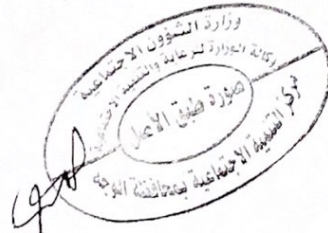 وزارة الشؤون الاجتماعية
وكالة الوزارة لرعاية والتنمية الاجتماعية
صورة طبق الأصل
مركز التنمية الاجتماعية بمحافظة الوجه